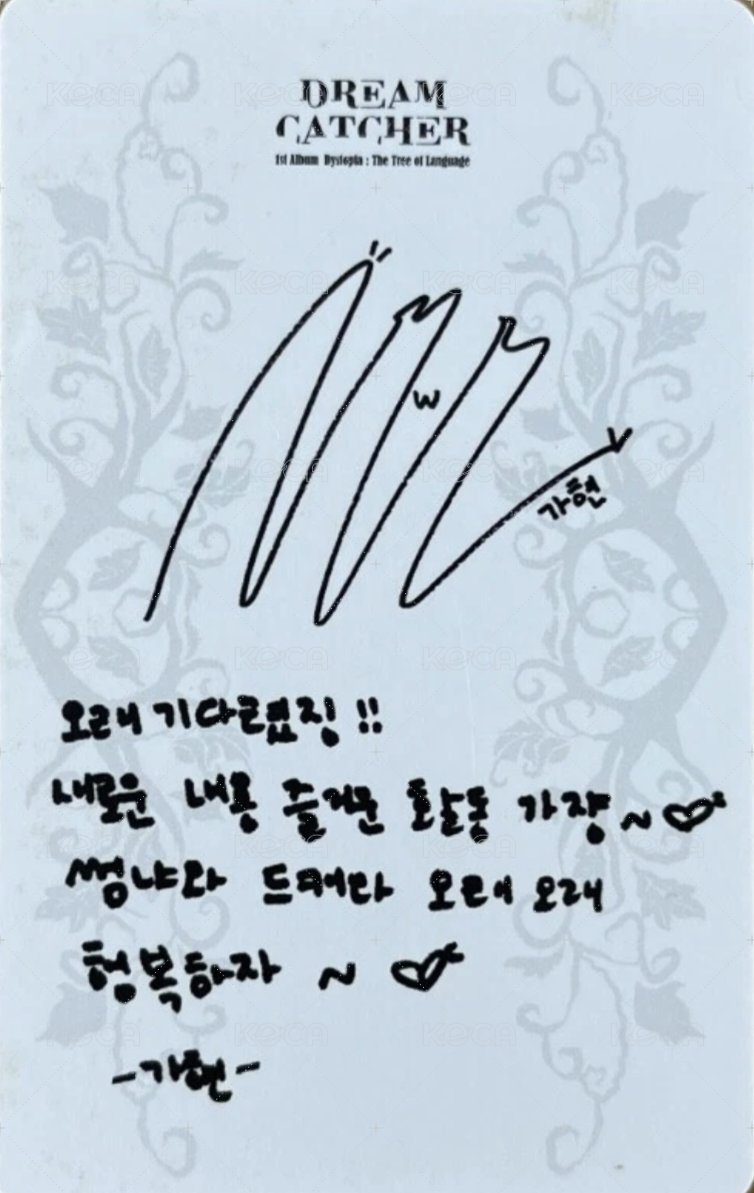 DREAM
CATCHER
1st Album Dystopia : The Tree of Language
W
가현
오래 기다렸징 !!
새로운 내용 즐거운 활동 가쟝~
썸냐와 드캐라 오래 오래
행복하자 ~
-가현-
KOCA